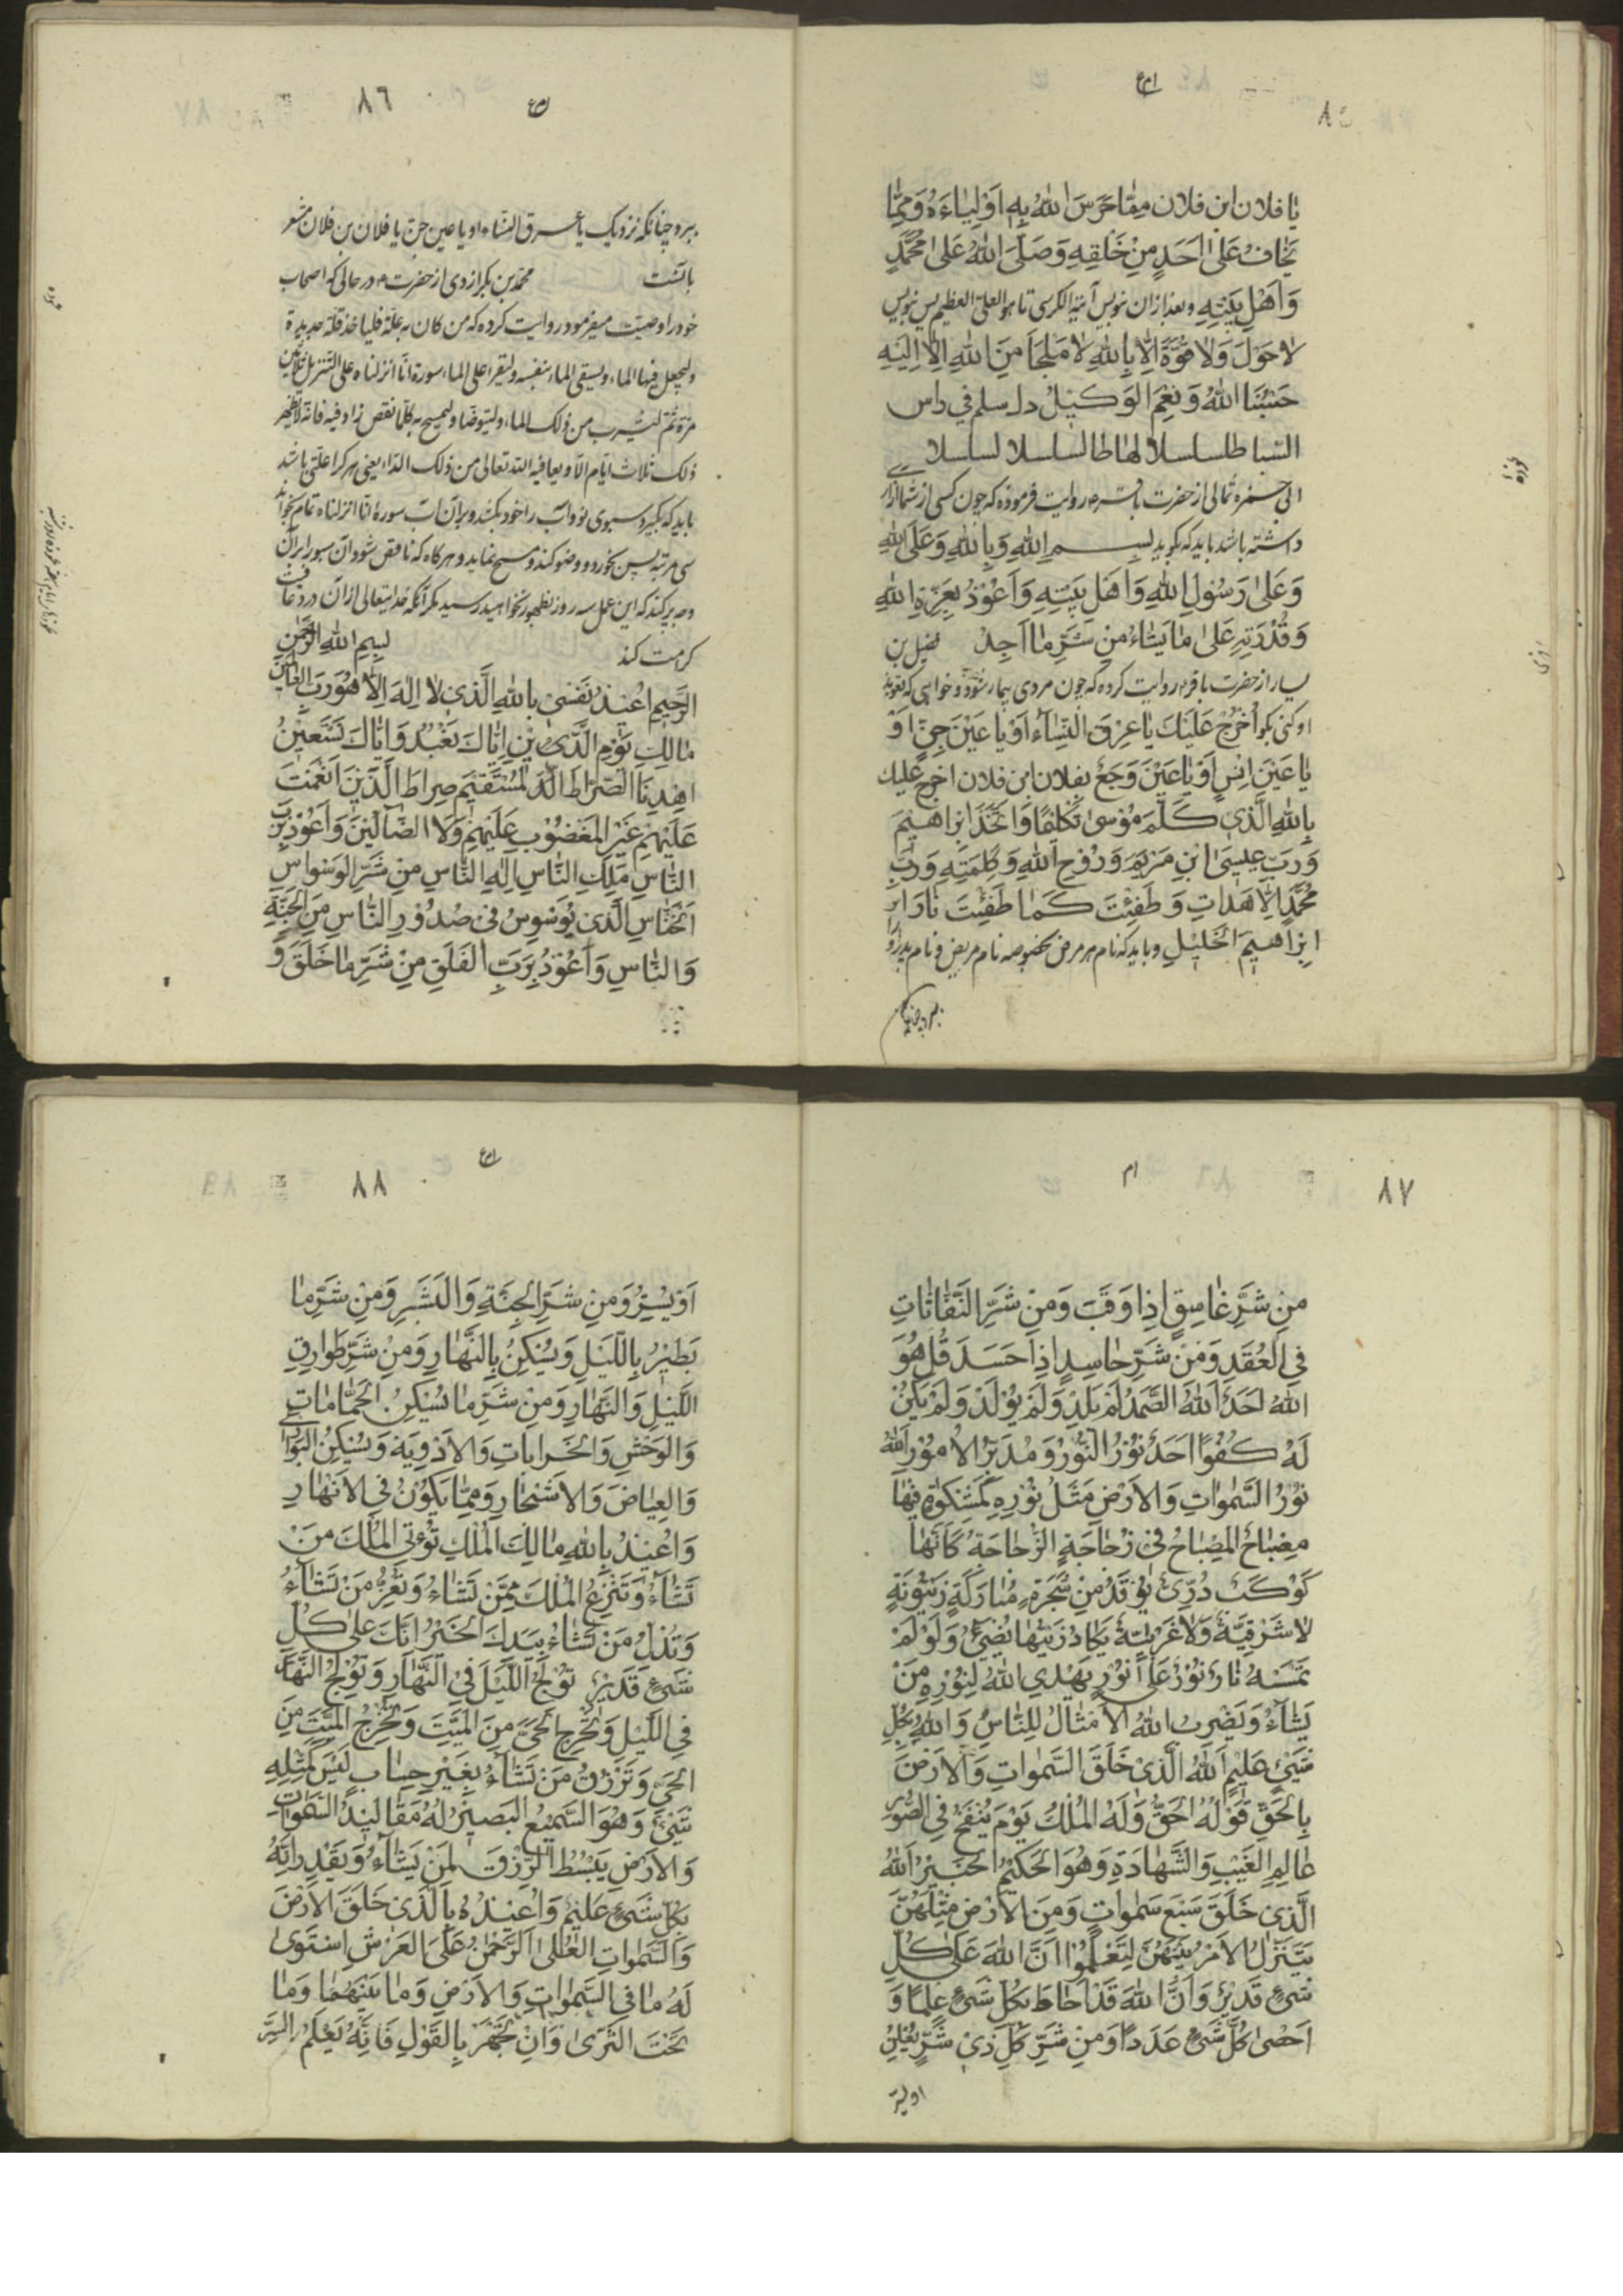 ٨٥
يا فلان ابن فلان مما حرس الله به اولياءه ومما
يخاف على احد من خلقه وصلى الله على محمد
واهل بيته وبعد ازان بنويس آية الكرسى تا هو العلى العظيم پس بنويس
لا حول ولا قوة الا بالله لا ملجا من الله الا اليه
حسبنا الله ونعم الوكيل دل سلم في راس
السباطا لسلسلا لهاطا لسلسلا لسلسلا
ابى حمزه ثمالى از حضرت باقر ع روايت فرموده كه چون كسى از شما آزارى
داشته باشد بايد كه بگويد بسم الله وبالله وعلى الله
وعلى رسول الله واهل بيته واعوذ بعزة الله
وقدرته على ما يشاء من شر ما اجد فضيل بن
يسار از حضرت باقر ع روايت كرده كه چون مردى بيمار شود وخواهى كه تعويذ
او كنى بگو اخرج عليك يا عرق النساء او يا عين جن او
يا عين انس او يا عين وجع بفلان ابن فلان اخرج عليك
بالله الذى كلم موسى تكليما واتخذ ابراهيم
ورب عيسى ابن مريم وروح الله وكلمته ورب
محمد الا هدات وطفئت كما طفئت نار ابر
ابراهيم الخليل وبايد كه نام هر مرض بخصوصه نام مريض ونام پدر او را
ببرد چنانكه
٨٦
ببرد چنانكه نزديك يا عرق النساء او يا عين جن يا فلان بن فلان مشعر
بآنست محمد بن بكر ازدى از حضرت ع در حالى كه اصحاب
خود را وصيت ميفرمود روايت كرده كه من كان به علة فليأخذ قلة جديدة
وليجعل فيها الماء وليسقى الماء بنفسه وليقرا على الماء سورة انا انزلناه على التنزيل ثلاثين
مرة ثم ليشرب من ذلك الماء وليتوضا وليمسح به كلما نقص زاد فيه فانه لا يظهر
ذلك ثلاث ايام الا ويعافيه الله تعالى من ذلك الداء يعنى هر كرا علتى باشد
بايد كه بگيرد سبوى نو وآب را خود بكشد وبر آن آب سورهٔ انا انزلناه تمام بخواند
سى مرتبه پس بخورد ووضو كند ومسح نمايد وهرگاه كه ناقص شود آن سبو را بر آن
وجه پر كند كه اين عمل سه روز بظهور نخواهد رسيد مگر آنكه خدايتعالى از آن درد عافيت
كرامت كند بسم الله الرحمن
الرحيم اعيذ نفسى بالله الذى لا اله الا هو رب العالمين
مالك يوم الدين اياك نعبد واياك نستعين
اهدنا الصراط المستقيم صراط الذين انعمت
عليهم غير المغضوب عليهم ولا الضالين واعوذ برب
الناس ملك الناس اله الناس من شر الوسواس
الخناس الذى يوسوس فى صدور الناس من الجنة
والناس واعوذ برب الفلق من شر ما خلق و
٨٧
من شر غاسق اذا وقب ومن شر النفاثات
في العقد ومن شر حاسد اذا حسد قل هو
الله احد الله الصمد لم يلد ولم يولد ولم يكن
له كفوا احد نور النور ومدبر الامور الله
نور السموات والارض مثل نوره كمشكوة فيها
مصباح المصباح فى زجاجة الزجاجة كانها
كوكب درى يوقد من شجرة مباركة زيتونة
لا شرقية ولا غربية يكاد زيتها يضيئ ولو لم
تمسسه نار نور على نور يهدي الله لنوره من
يشاء ويضرب الله الامثال للناس والله بكل
شيئ عليم الله الذى خلق السموات والارض
بالحق قوله الحق وله الملك يوم ينفخ في الصور
عالم الغيب والشهادة وهو الحكيم الخبير الله
الذى خلق سبع سموات ومن الارض مثلهن
يتنزل الامر بينهن لتعلموا ان الله على كل
شىء قدير وان الله قد احاط بكل شىء علما و
احصى كل شىء عددا ومن شر كل ذى شر يعلن
او يسر
٨٨
او يسر ومن شر الجنة والبشر ومن شر ما
يطير بالليل ويسكن بالنهار ومن شر طوارق
الليل والنهار ومن شر ما يسكن الحمامات
والوحش والخرابات والاودية ويسكن البرارى
والغياض والاشجار ومما يكون في الانهار
واعيذ بالله مالك الملك تؤتى الملك من
تشاء وتنزع الملك ممن تشاء وتعز من تشاء
وتذل من تشاء بيدك الخير انك على كل
شىء قدير تولج الليل في النهار وتولج النهار
في الليل وتخرج الحى من الميت وتخرج الميت من
الحى وترزق من تشاء بغير حساب ليس كمثله
شىء وهو السميع البصير له مقاليد السموات
والارض يبسط الرزق لمن يشاء ويقدر انه
بكل شىء عليم واعيذه بالذى خلق الارض
والسموات العلى الرحمن على العرش استوى
له ما في السموات والارض وما بينهما وما
تحت الثرى وان تجهر بالقول فانه يعلم السر